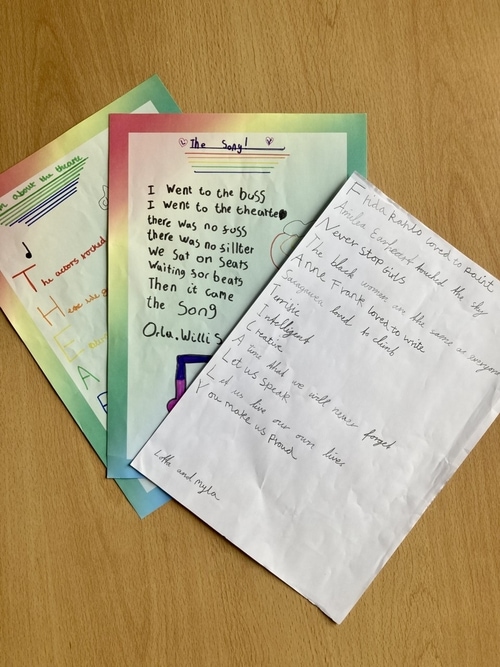 about the theatre
The actors rocked
we
E
A
E
The Song!
I Went to the buss
I went to the thearte
there was no fuss
there was no sillter
We Sat on Seats
Waiting for beats
Then it came
the Song
Orla. Willis
Frida kahlo loved to paint
Amelia Earheart touched the sky
Never stop
The black women are the same as everyone
Anne Frank loved to write
Sacagawea loved to climb
Terrific
Intelligent
Creative
A time that we will never forget
Let us speak
Let us live our own lives
You make us proud
Lotta and Myla